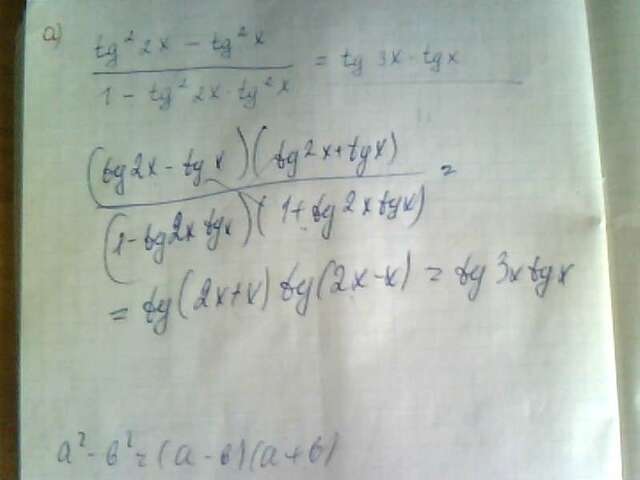 а)
tg² 2x − tg² x
───────────── = tg 3x · tg x
1 − tg² 2x · tg² x
(tg 2x − tg x)(tg 2x + tg x)
───────────────────── =
(1 − tg 2x tg x)(1 + tg 2x tg x)
= tg(2x+x) tg(2x−x) = tg 3x tg x
a² − b² = (a − b)(a + b)